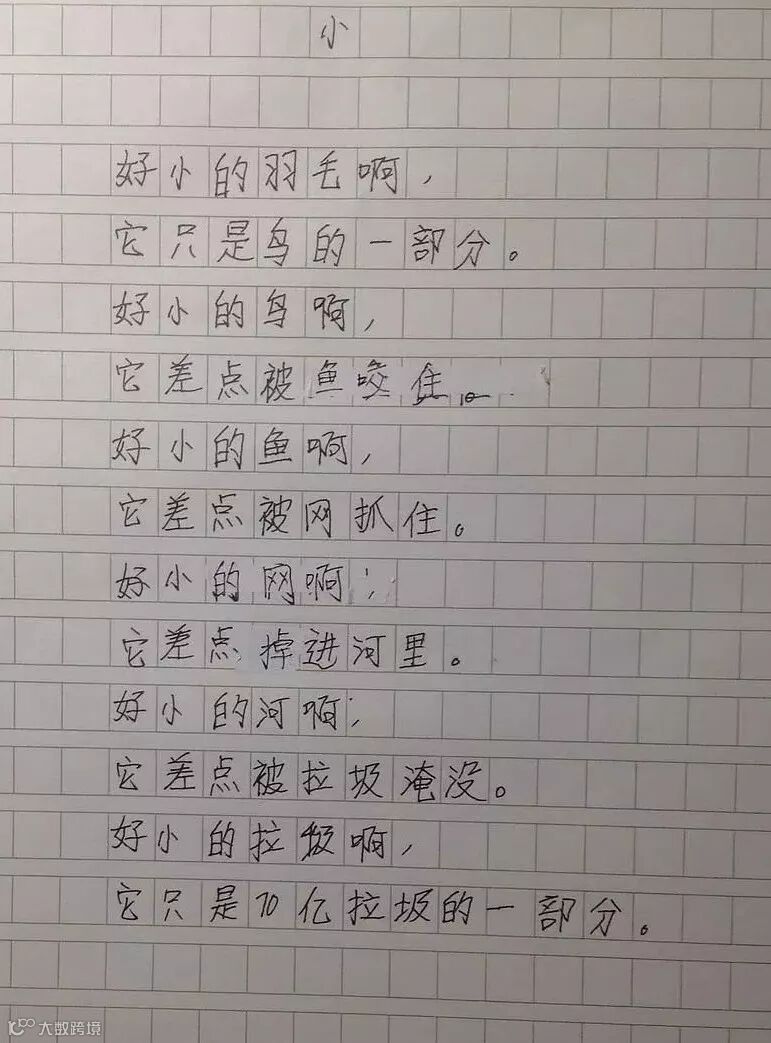 小
好小的羽毛啊，
它只是鸟的一部分。
好小的鸟啊，
它差点被鱼咬住。
好小的鱼啊，
它差点被网抓住。
好小的网啊，
它差点掉进河里。
好小的河啊，
它差点被垃圾淹没。
好小的垃圾啊，
它只是70亿垃圾的一部分。
大数跨境